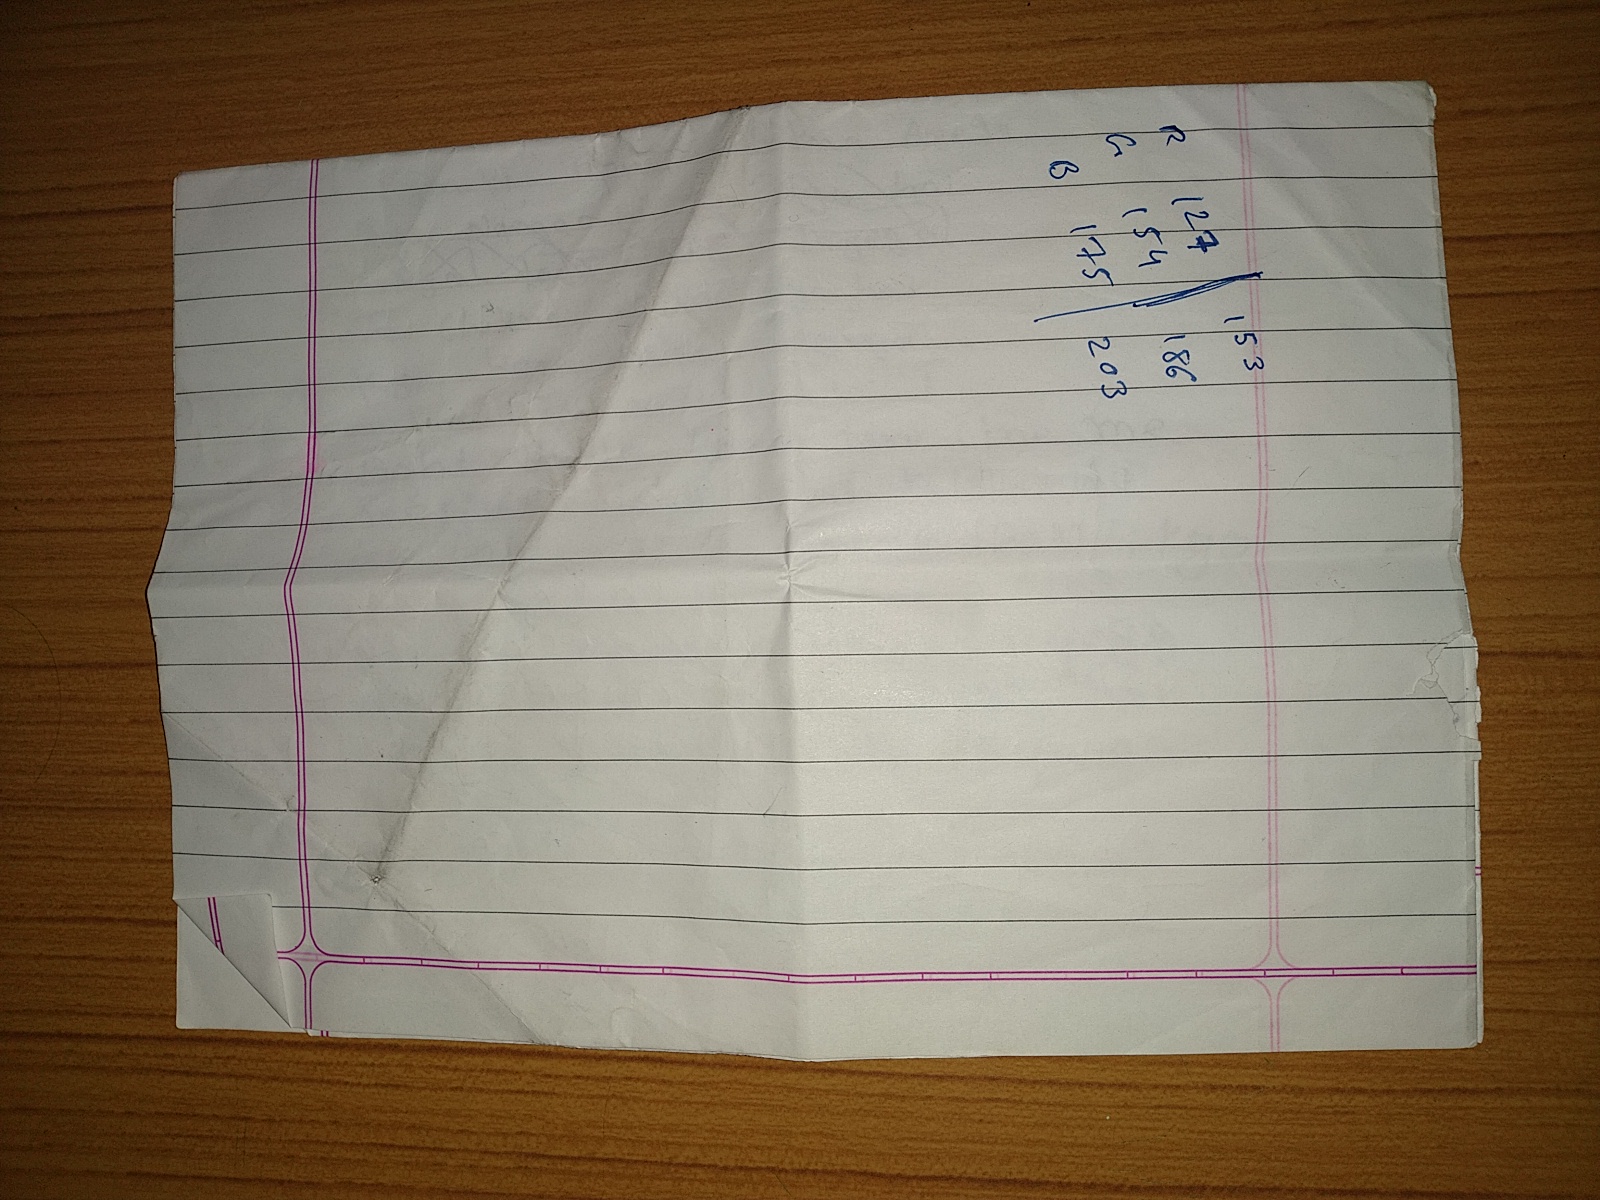 R 127 153
G 154 186
B 175 203